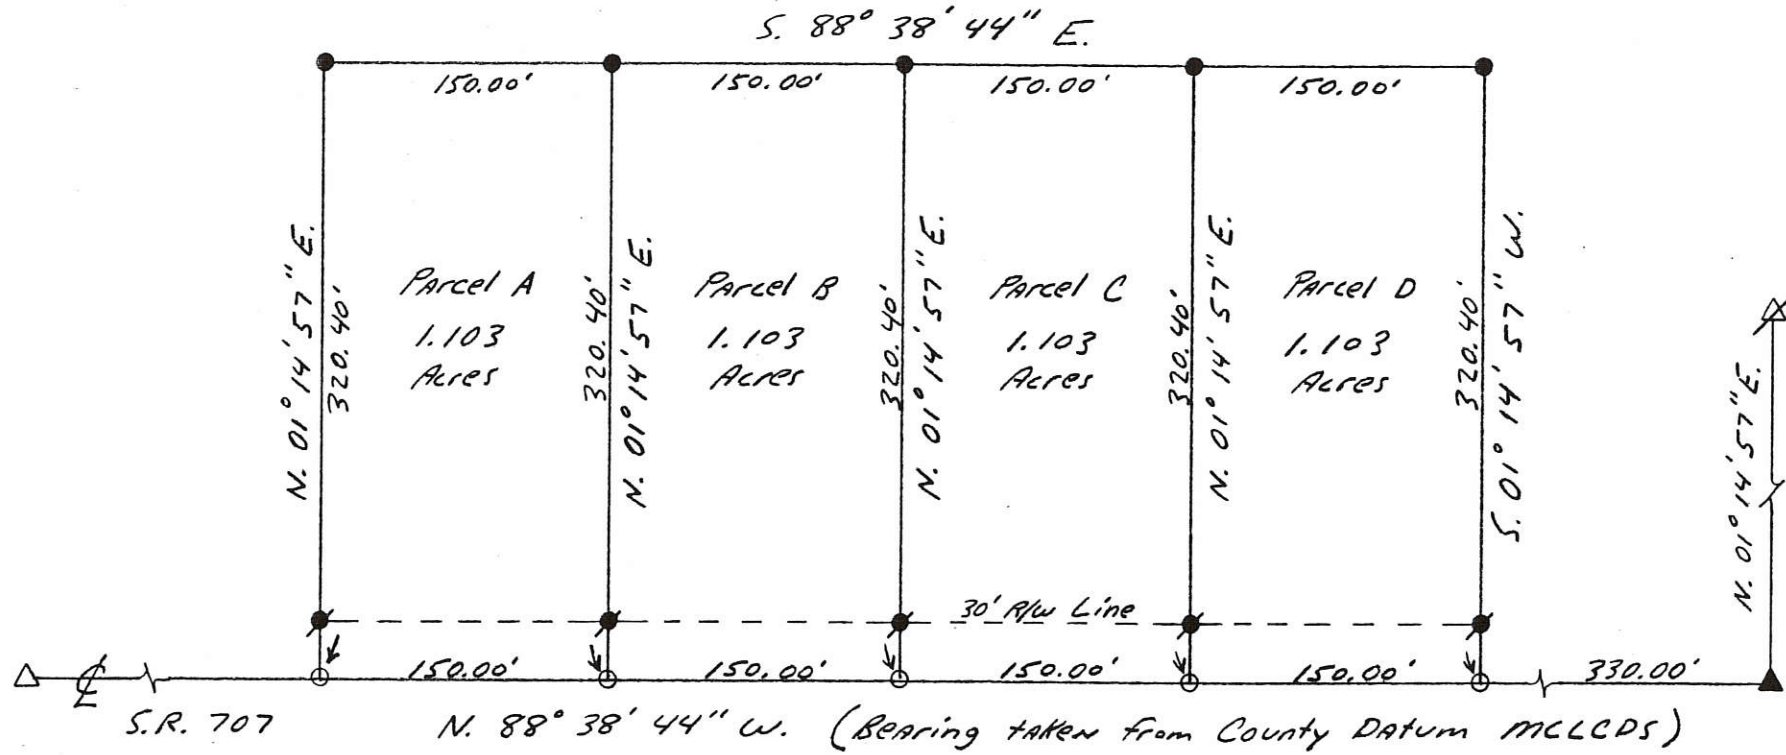 S. 88° 38' 44" E.
150.00'
150.00'
150.00'
150.00'
N. 01° 14' 57" E.
320.40'
Parcel A
1.103
Acres
320.40'
N. 01° 14' 57" E.
Parcel B
1.103
Acres
320.40'
N. 01° 14' 57" E.
Parcel C
1.103
Acres
320.40'
N. 01° 14' 57" E.
Parcel D
1.103
Acres
320.40'
S. 01° 14' 57" W.
N. 01° 14' 57" E.
30' R/W Line
℄
150.00'
150.00'
150.00'
150.00'
330.00'
S.R. 707
N. 88° 38' 44" W. (Bearing taken from County Datum MCLCDS)